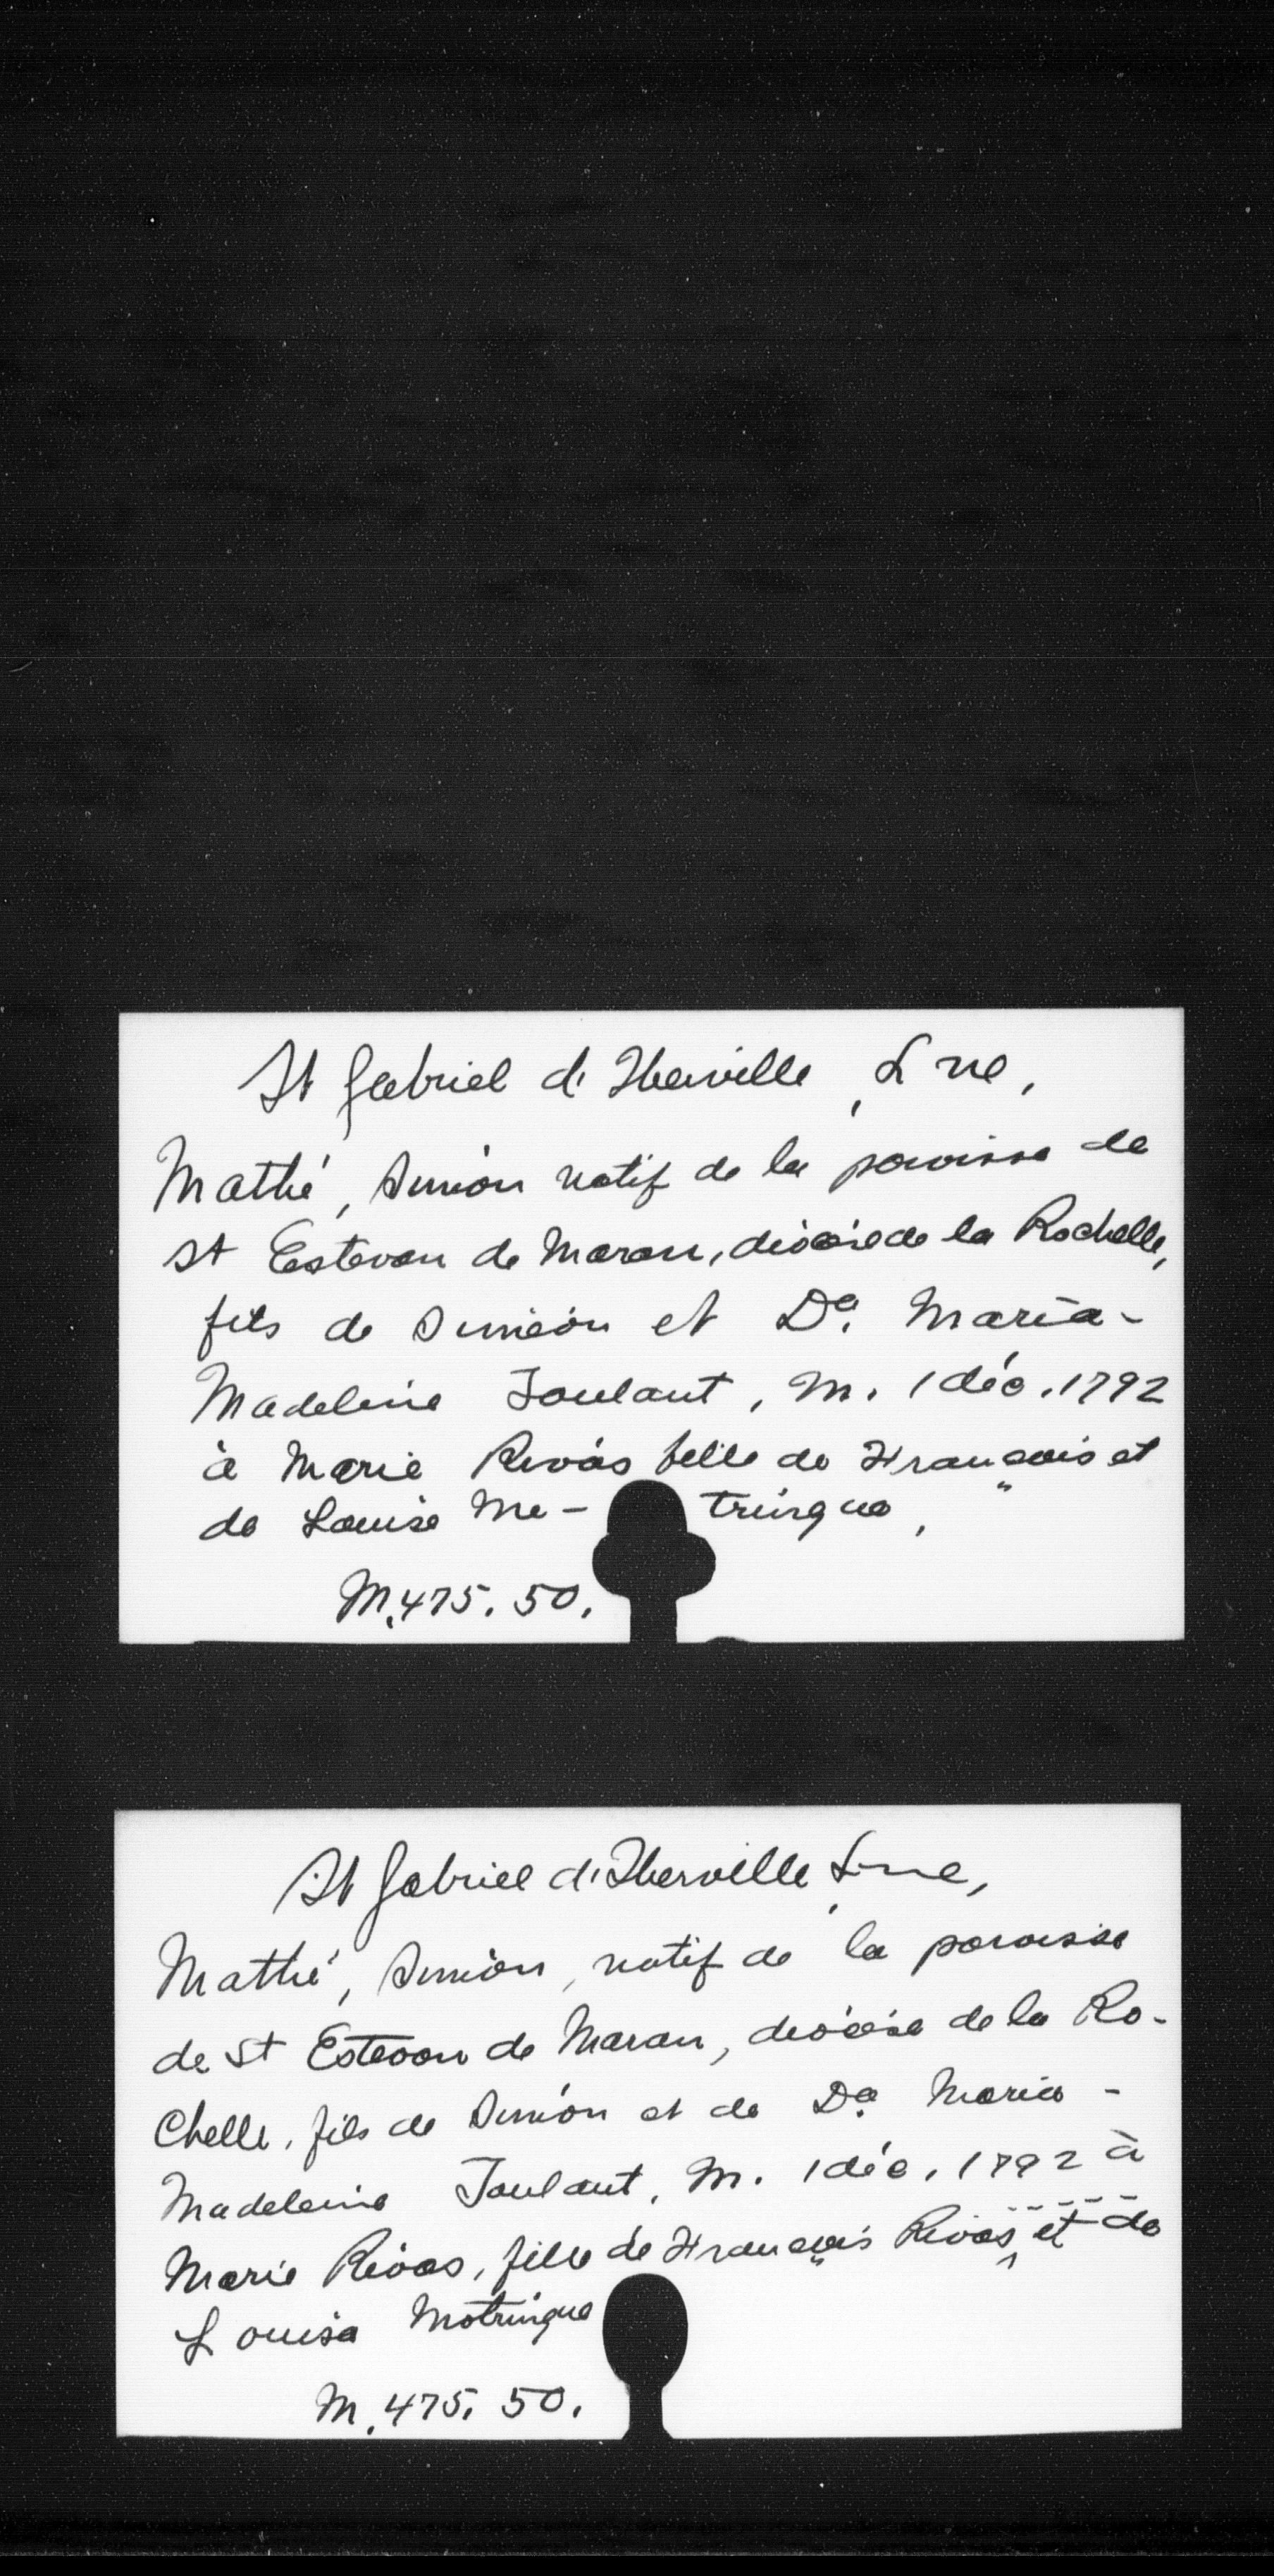 St Gabriel d'Iberville, Lne,
Mathé, Simón natif de la paroisse de
St Estevan de Maran, diocèse de la Rochelle,
fils de Simeón et Da. Maria-
Madeleine Joulant, M. 1 déc. 1792
à Marie Rivás fille de François et
de Louise Me-tringue,
M.475.50.
St Gabriel d'Iberville, Lne,
Mathé, Simón, natif de la paroisse
de St Estevan de Maran, diocèse de la Ro-
chelle, fils de Simón et de Da. Maria-
Madeleine Joulant, M. 1 déc. 1792 à
Marie Rivas, fille de François Rivas, et de
Louise Motringue
M.475.50.